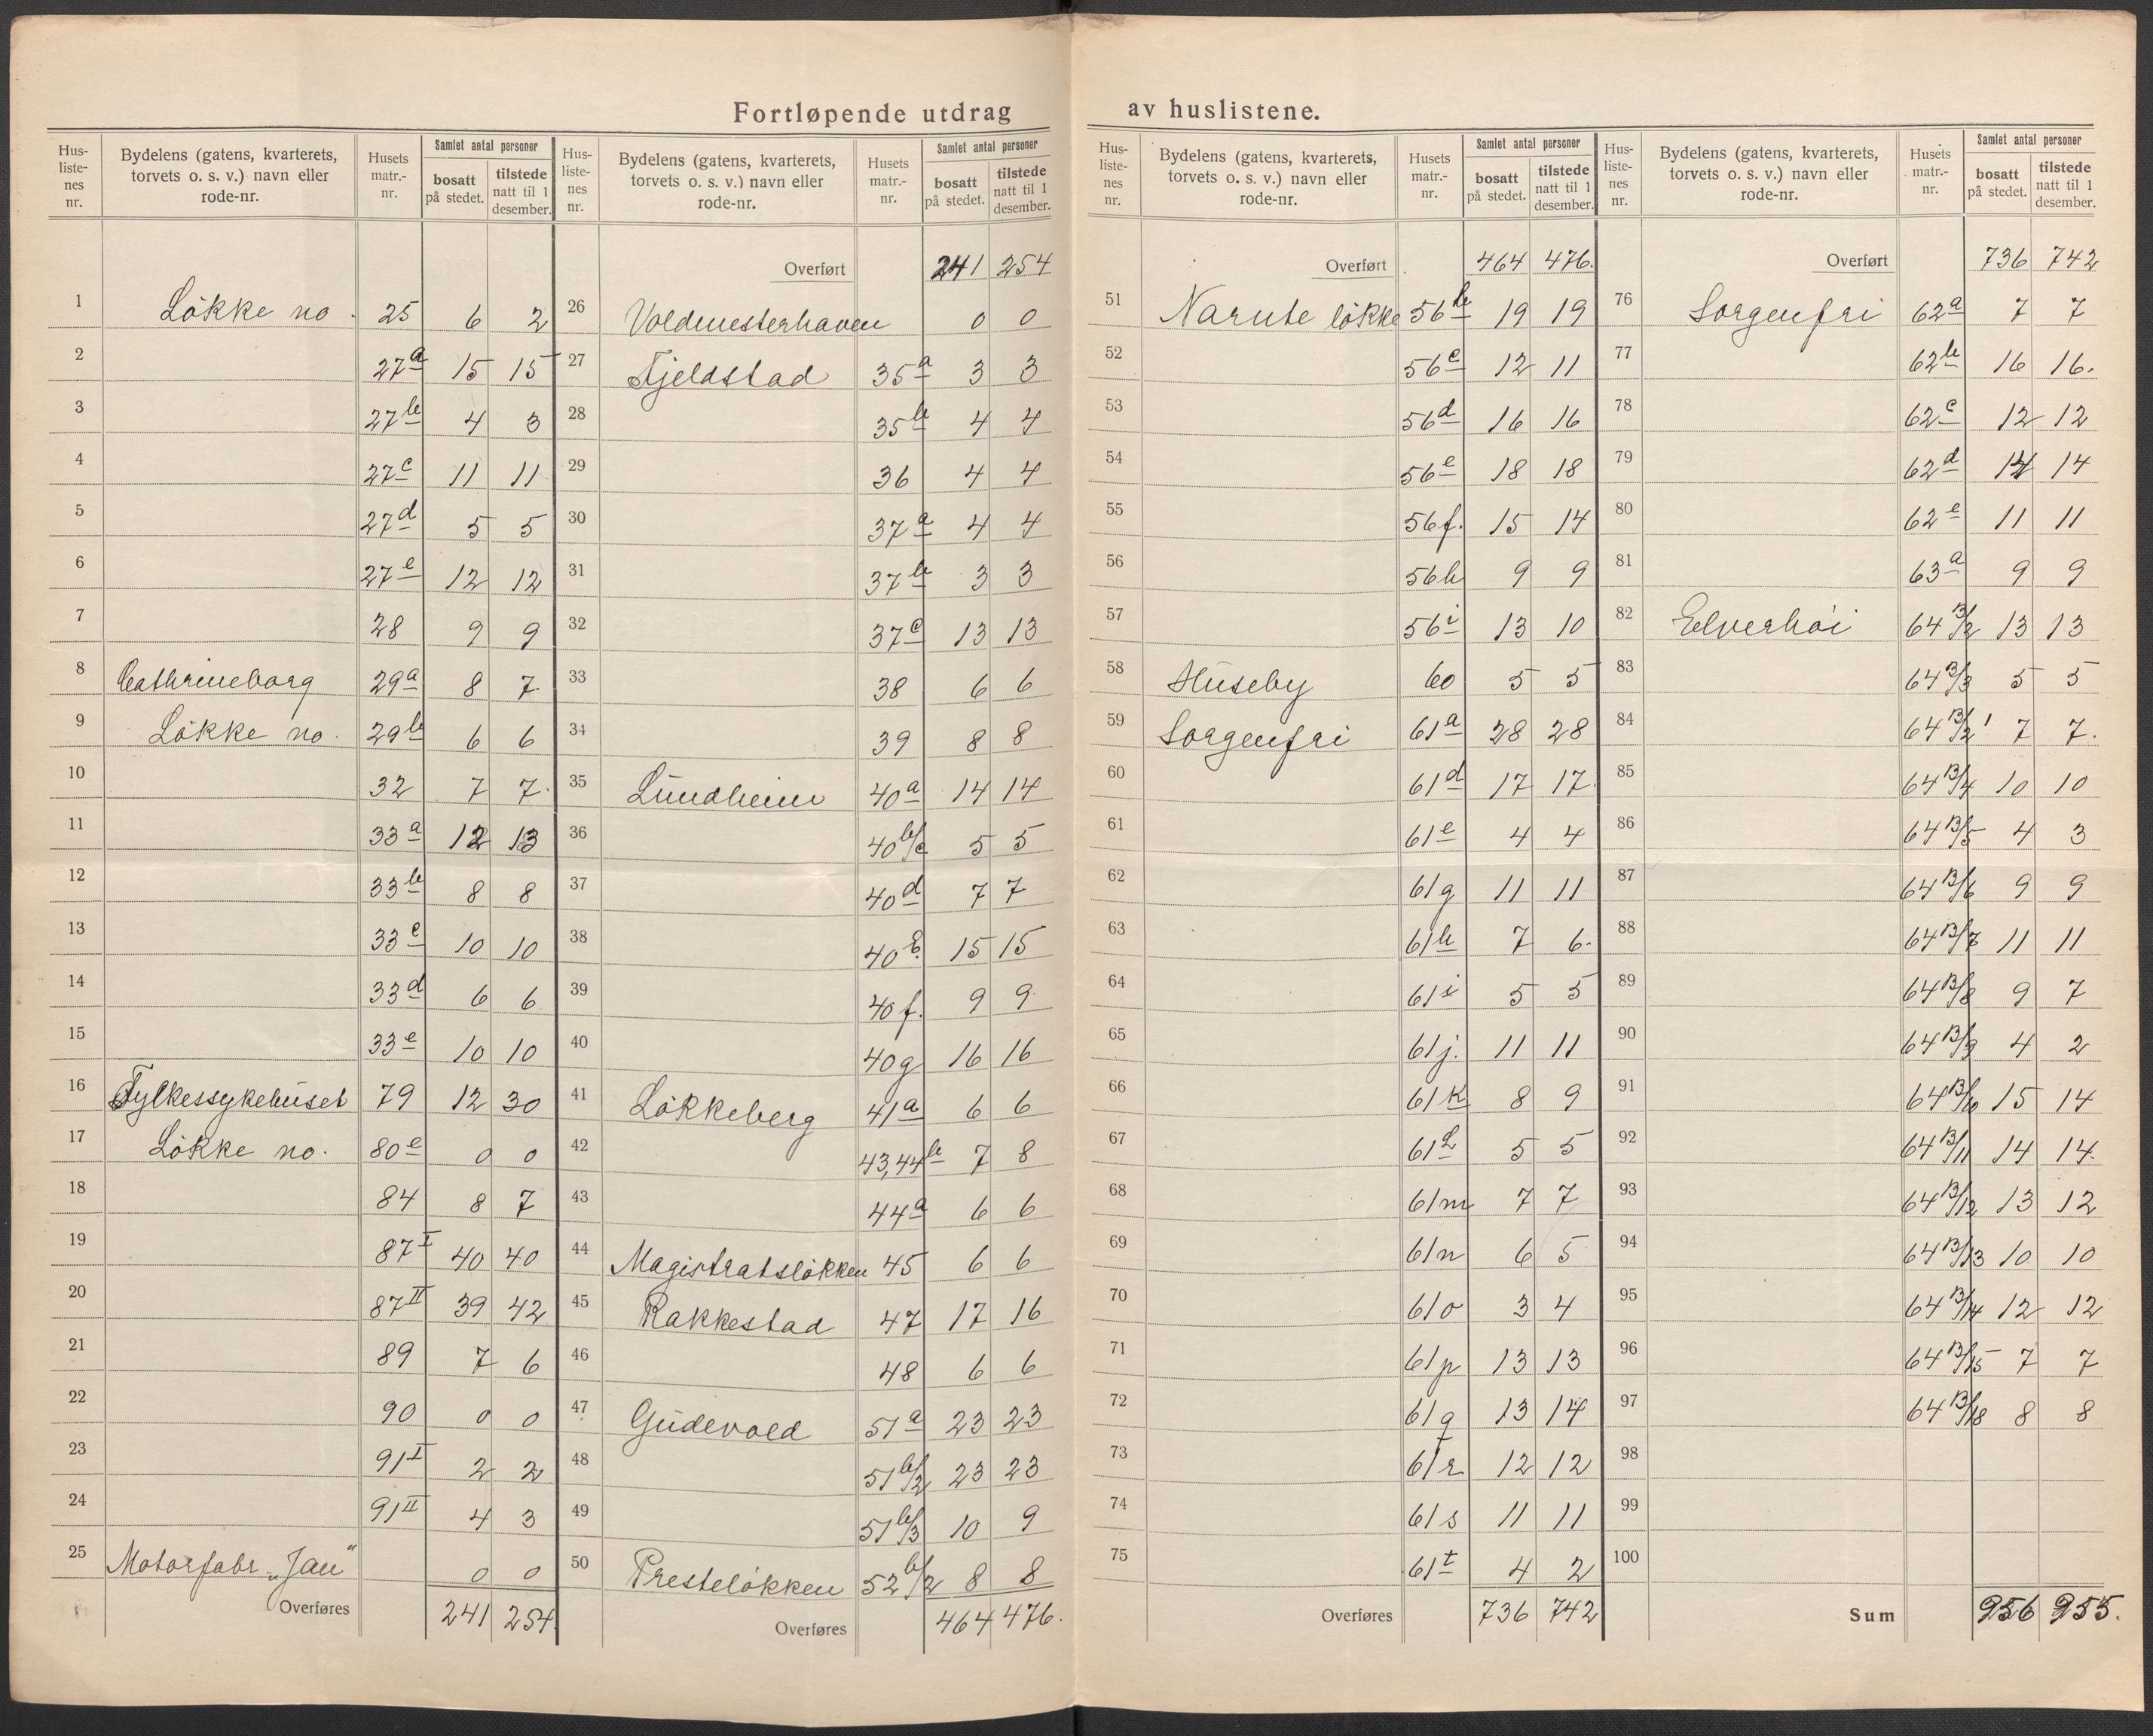 Fortløpende utdrag av huslistene.
Hus-liste-nes nr. | Bydelens (gatens, kvarterets, torvets o. s. v.) navn eller rode-nr. | Husets matr.-nr. | Samlet antal personer | bosatt på stedet. | tilstede natt til 1 desember.
1 Løkke no. 25 6 2
2 27a 15 15
3 27b 4 3
4 27c 11 11
5 27d 5 5
6 27e 12 12
7 28 9 9
8 Cathrineborg 29a 8 7
9 Løkke no. 29b 6 6
10 32 7 7
11 33a 12 13
12 33b 8 8
13 33c 10 10
14 33d 6 6
15 33e 10 10
16 Fylkessykehuset 79 12 30
17 Løkke no. 80e 0 0
18 84 8 7
19 87I 40 40
20 87II 39 42
21 89 7 6
22 90 0 0
23 91I 2 2
24 91II 4 3
25 Motorfabr. „Jan" 0 0
Overføres 241 254
Hus-liste-nes nr. | Bydelens (gatens, kvarterets, torvets o. s. v.) navn eller rode-nr. | Husets matr.-nr. | Samlet antal personer | bosatt på stedet. | tilstede natt til 1 desember.
Overført 241 254
26 Voldmesterhaven 0 0
27 Fjeldstad 35a 3 3
28 35b 4 4
29 36 4 4
30 37a 4 4
31 37b 3 3
32 37c 13 13
33 38 6 6
34 39 8 8
35 Lundheim 40a 14 14
36 40b/c 5 5
37 40d 7 7
38 40e. 15 15
39 40f. 9 9
40 40g 16 16
41 Løkkeberg 41a 6 6
42 43,44b 7 8
43 44a 6 6
44 Magistratsløkken 45 6 6
45 Rakkestad 47 17 16
46 48 6 6
47 Gudevold 51a 23 23
48 51b/2 23 23
49 51b/3 10 9
50 Presteløkken 52b/2 8 8
Overføres 464 476.
Hus-liste-nes nr. | Bydelens (gatens, kvarterets, torvets o. s. v.) navn eller rode-nr. | Husets matr.-nr. | Samlet antal personer | bosatt på stedet. | tilstede natt til 1 desember.
Overført 464 476.
51 Narute løkke 56b 19 19
52 56c 12 11
53 56d 16 16
54 56e 18 18
55 56f. 15 14
56 56h 9 9
57 56i 13 10
58 Huseby 60 5 5
59 Sorgenfri 61a 28 28
60 61d 17 17
61 61e 4 4
62 61g 11 11
63 61h 7 6
64 61i 5 5
65 61j. 11 11
66 61k 8 9
67 61L 5 5
68 61m 7 7
69 61n 6 5
70 61o 3 4
71 61p 13 13
72 61q 13 14
73 61r 12 12
74 61s 11 11
75 61t 4 2
Overføres 736 742
Hus-liste-nes nr. | Bydelens (gatens, kvarterets, torvets o. s. v.) navn eller rode-nr. | Husets matr.-nr. | Samlet antal personer | bosatt på stedet. | tilstede natt til 1 desember.
Overført 736 742
76 Sorgenfri 62a 7 7
77 62b 16 16.
78 62c 12 12
79 62d 14 14
80 62e 11 11
81 63a 9 9
82 Elverhøi 64 B/2 13 13
83 64 B/3 5 5
84 64 B/2 1 7 7.
85 64 B/4 10 10
86 64 B/5 4 3
87 64 B/6 9 9
88 64 B/7 11 11
89 64 B/8 9 7
90 64 B/9 4 2
91 64 B/10 15 14
92 64 B/11 14 14
93 64 B/12 13 12
94 64 B/13 10 10
95 64 B/14 12 12
96 64 B/15 7 7
97 64 B/18 8 8
98
99
100
Sum 956 955.